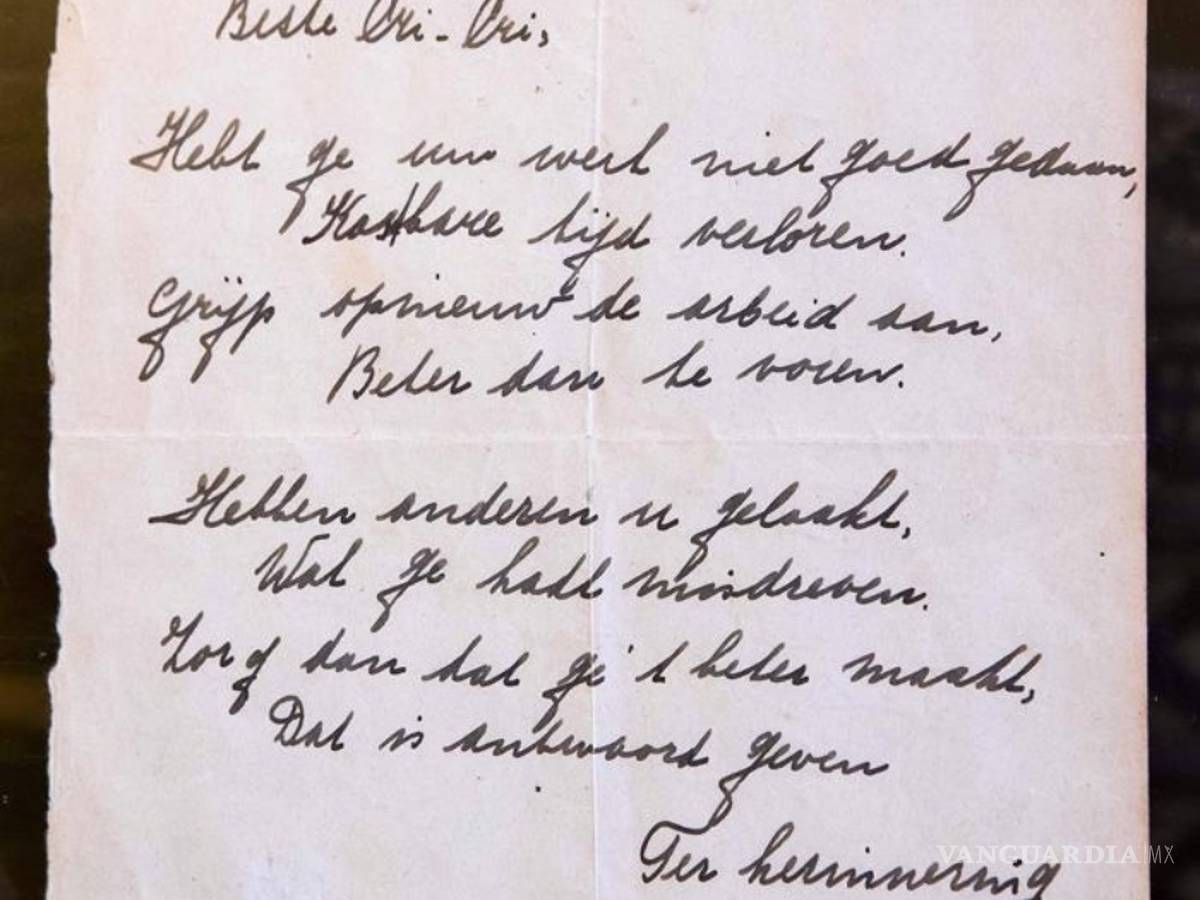 Beste Cri-Cri,
Hebt ge uw werk niet goed gedaan,
Kostbare tijd verloren.
Grijp opnieuw de arbeid aan,
Beter dan te voren.
Hebben anderen u gelaakt,
Wat ge hadt misdreven.
Zorg dan dat ge 't beter maakt,
Dat is antwoord geven
Ter herinnering
VANGUARDIA|MX